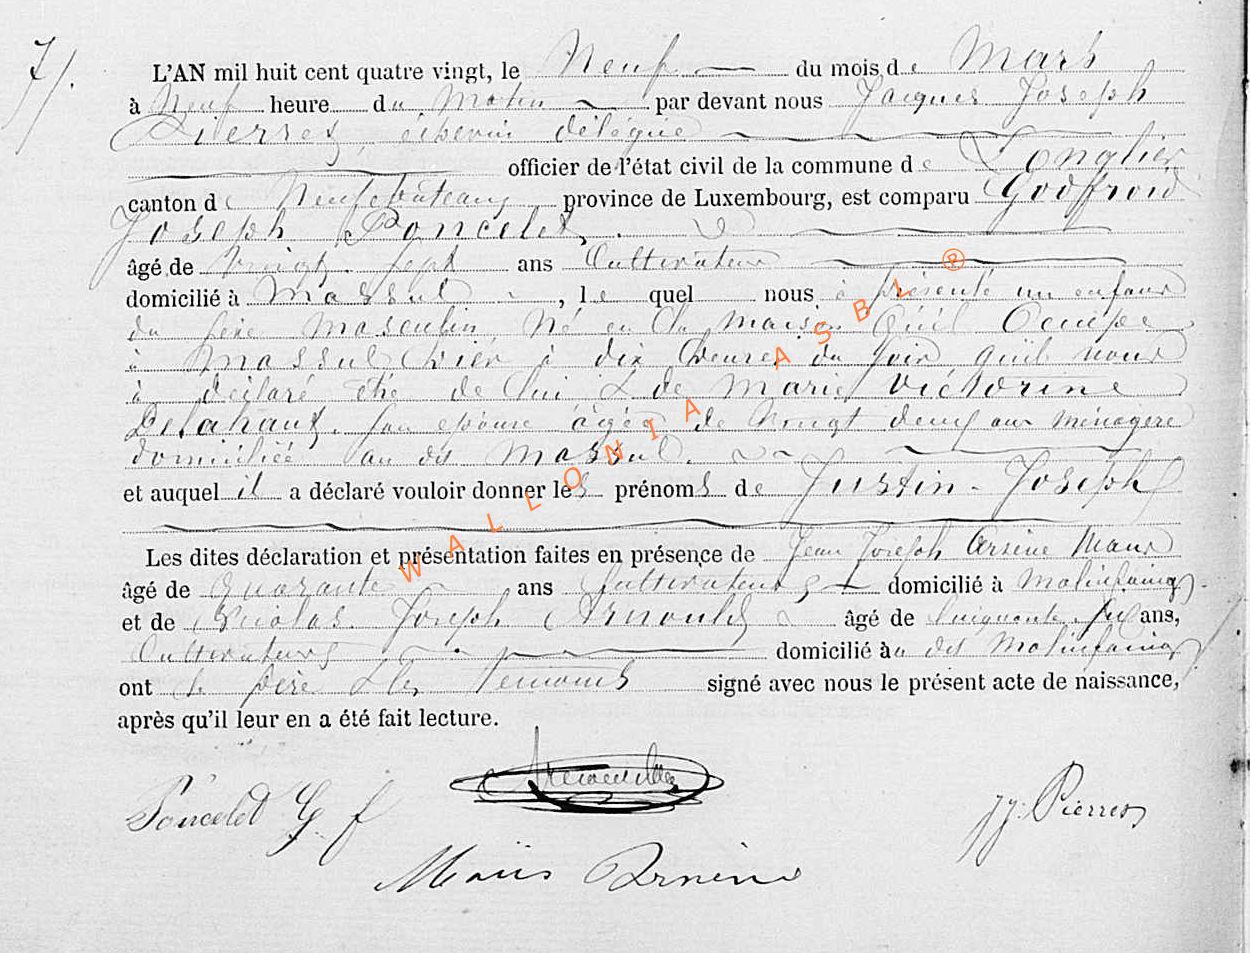 7/.
L'AN mil huit cent quatre vingt, le Neuf du mois de Mars
à Neuf heure du Matin par devant nous Jacques Joseph
Pierret, échevin délégué
officier de l'état civil de la commune de Longlier
canton de Neufchâteau, province de Luxembourg, est comparu Godffroid
Joseph Poncelet,
âgé de Vingt Sept ans Cultivateur
domicilié à Massul, le quel nous à présenté un enfant
du sexe masculin Né en la maison qu'il Occupe
à Massul hier à dix heures du soir qu'il nous
à déclaré être de lui & de Marie Victorine
Delahaut, son épouse âgée de Vingt deux ans ménagère
domiciliée au dit Massul.
et auquel il a déclaré vouloir donner les prénoms de Justin - Joseph
Les dites déclaration et présentation faites en présence de Jean Joseph Arsène Maus
âgé de Quarante ans Cultivateur, domicilié à Molinfaing
et de Nicolas Joseph Arnould âgé de Cinquante Six ans,
Cultivateur domicilié au dit Molinfaing
ont le père & les témoins signé avec nous le présent acte de naissance,
après qu'il leur en a été fait lecture.
Poncelet G J
Arnould
J J. Pierret
Maus Arsène
WALLONIA ASBL ®